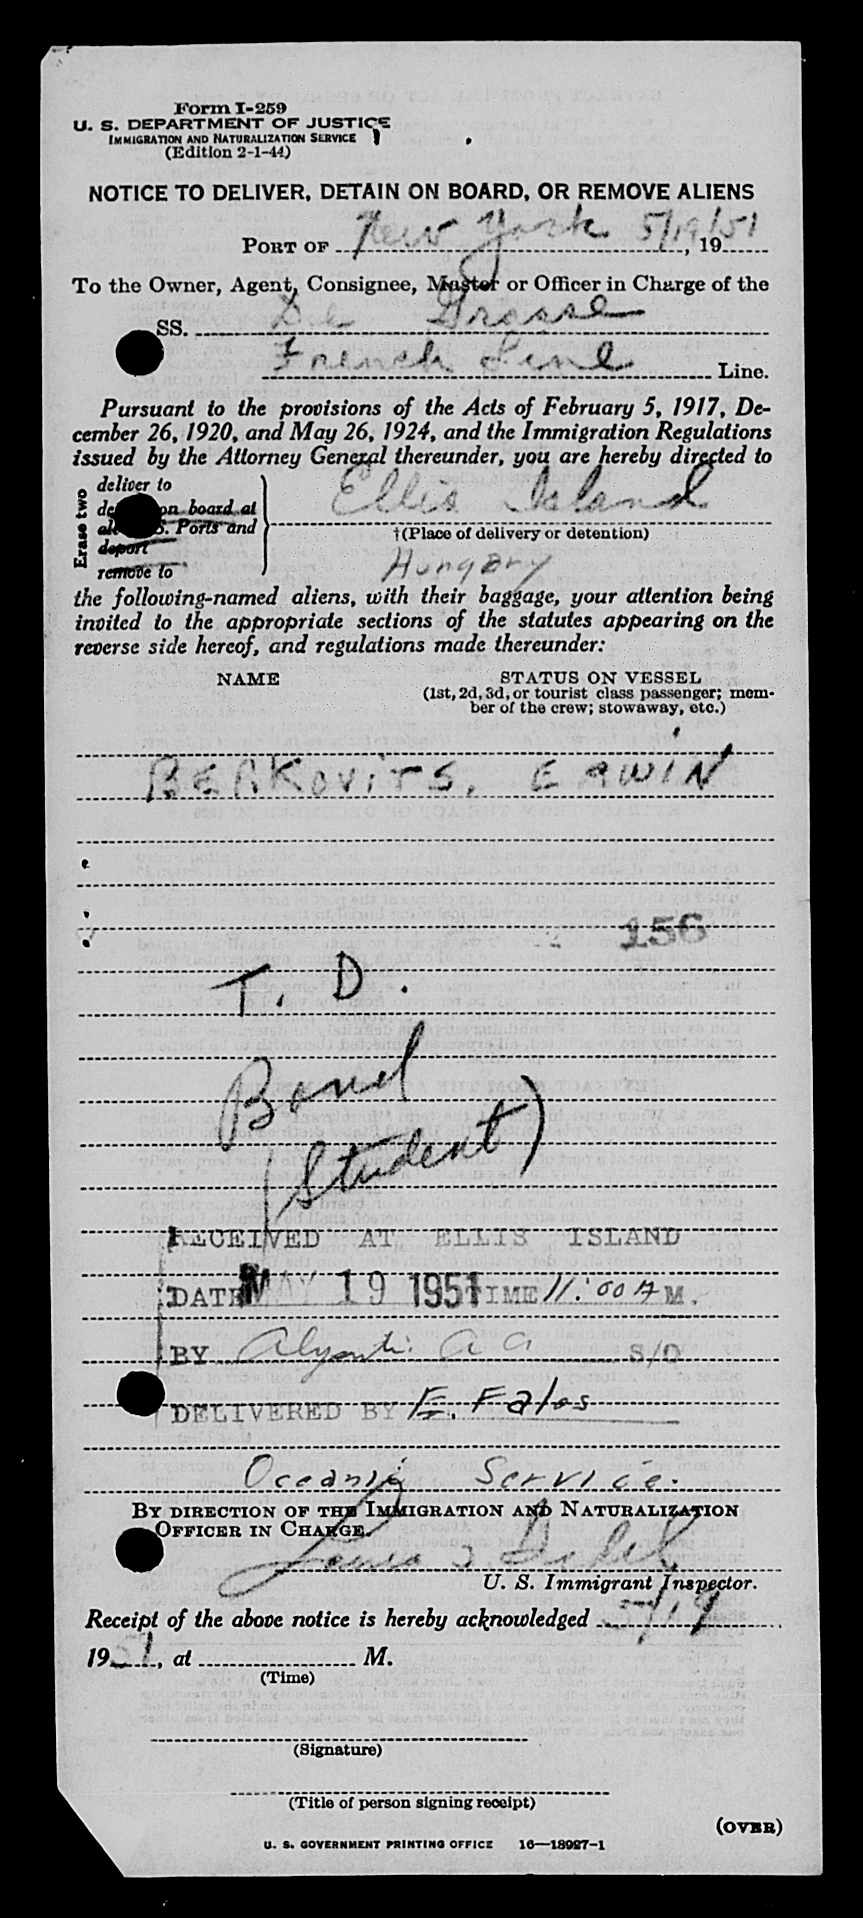 Form I-259
U. S. DEPARTMENT OF JUSTICE
IMMIGRATION AND NATURALIZATION SERVICE
(Edition 2-1-44)
NOTICE TO DELIVER, DETAIN ON BOARD, OR REMOVE ALIENS
PORT OF New York 5/19/51, 19
To the Owner, Agent, Consignee, Master or Officer in Charge of the
SS. De Grasse
French Line Line.
Pursuant to the provisions of the Acts of February 5, 1917, De-
cember 26, 1920, and May 26, 1924, and the Immigration Regulations
issued by the Attorney General thereunder, you are hereby directed to
Erase two
deliver to
on board at
S. Ports and
deport
remove to
Ellis Island
†(Place of delivery or detention)
Hungary
the following-named aliens, with their baggage, your attention being
invited to the appropriate sections of the statutes appearing on the
reverse side hereof, and regulations made thereunder:
NAME STATUS ON VESSEL
(1st, 2d, 3d, or tourist class passenger; mem-
ber of the crew; stowaway, etc.)
BERKOVITS, ERWIN
156
T. D.
Bond
(Student)
RECEIVED AT ELLIS ISLAND
DATE MAY 19 1951 TIME 11:00 A M.
BY S/O
DELIVERED BY E. Fatos
Oceanic Service.
BY DIRECTION OF THE IMMIGRATION AND NATURALIZATION
OFFICER IN CHARGE.
U. S. Immigrant Inspector.
Receipt of the above notice is hereby acknowledged 5/19
1951, at M.
(Time)
(Signature)
(Title of person signing receipt)
(OVER)
U. S. GOVERNMENT PRINTING OFFICE 16—18997-1